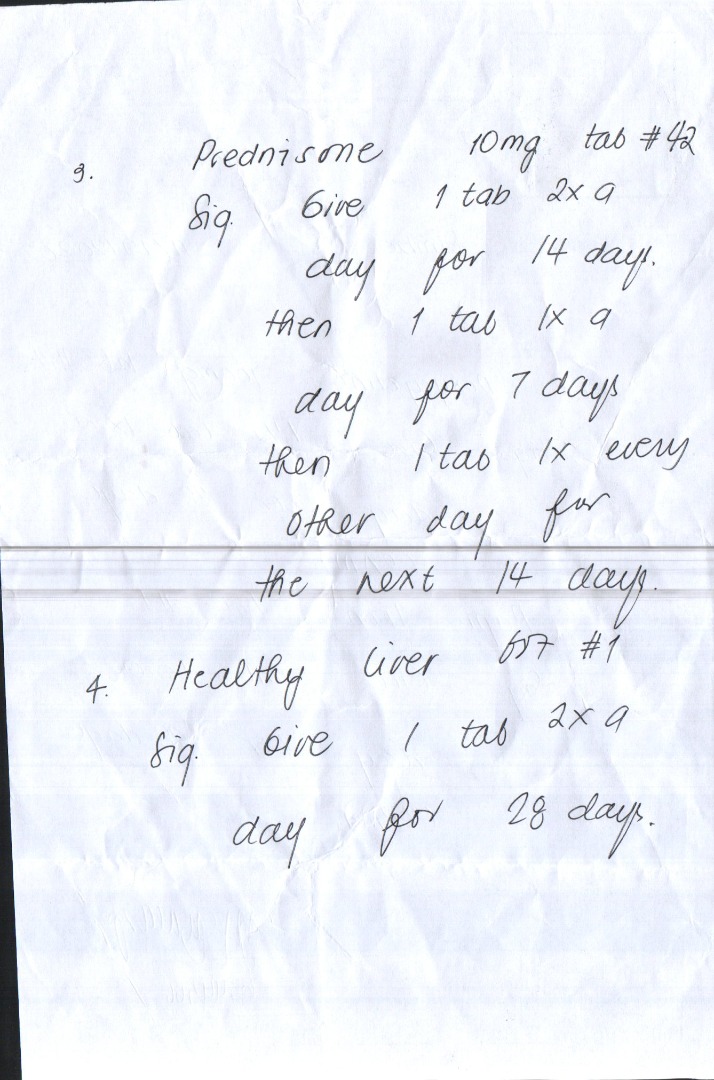 3. Prednisone 10mg tab #42
Sig. Give 1 tab 2x a
day for 14 days.
then 1 tab 1x a
day for 7 days
then 1 tab 1x every
other day for
the next 14 days.
4. Healthy Liver #1
Sig. Give 1 tab 2x a
day for 28 days.